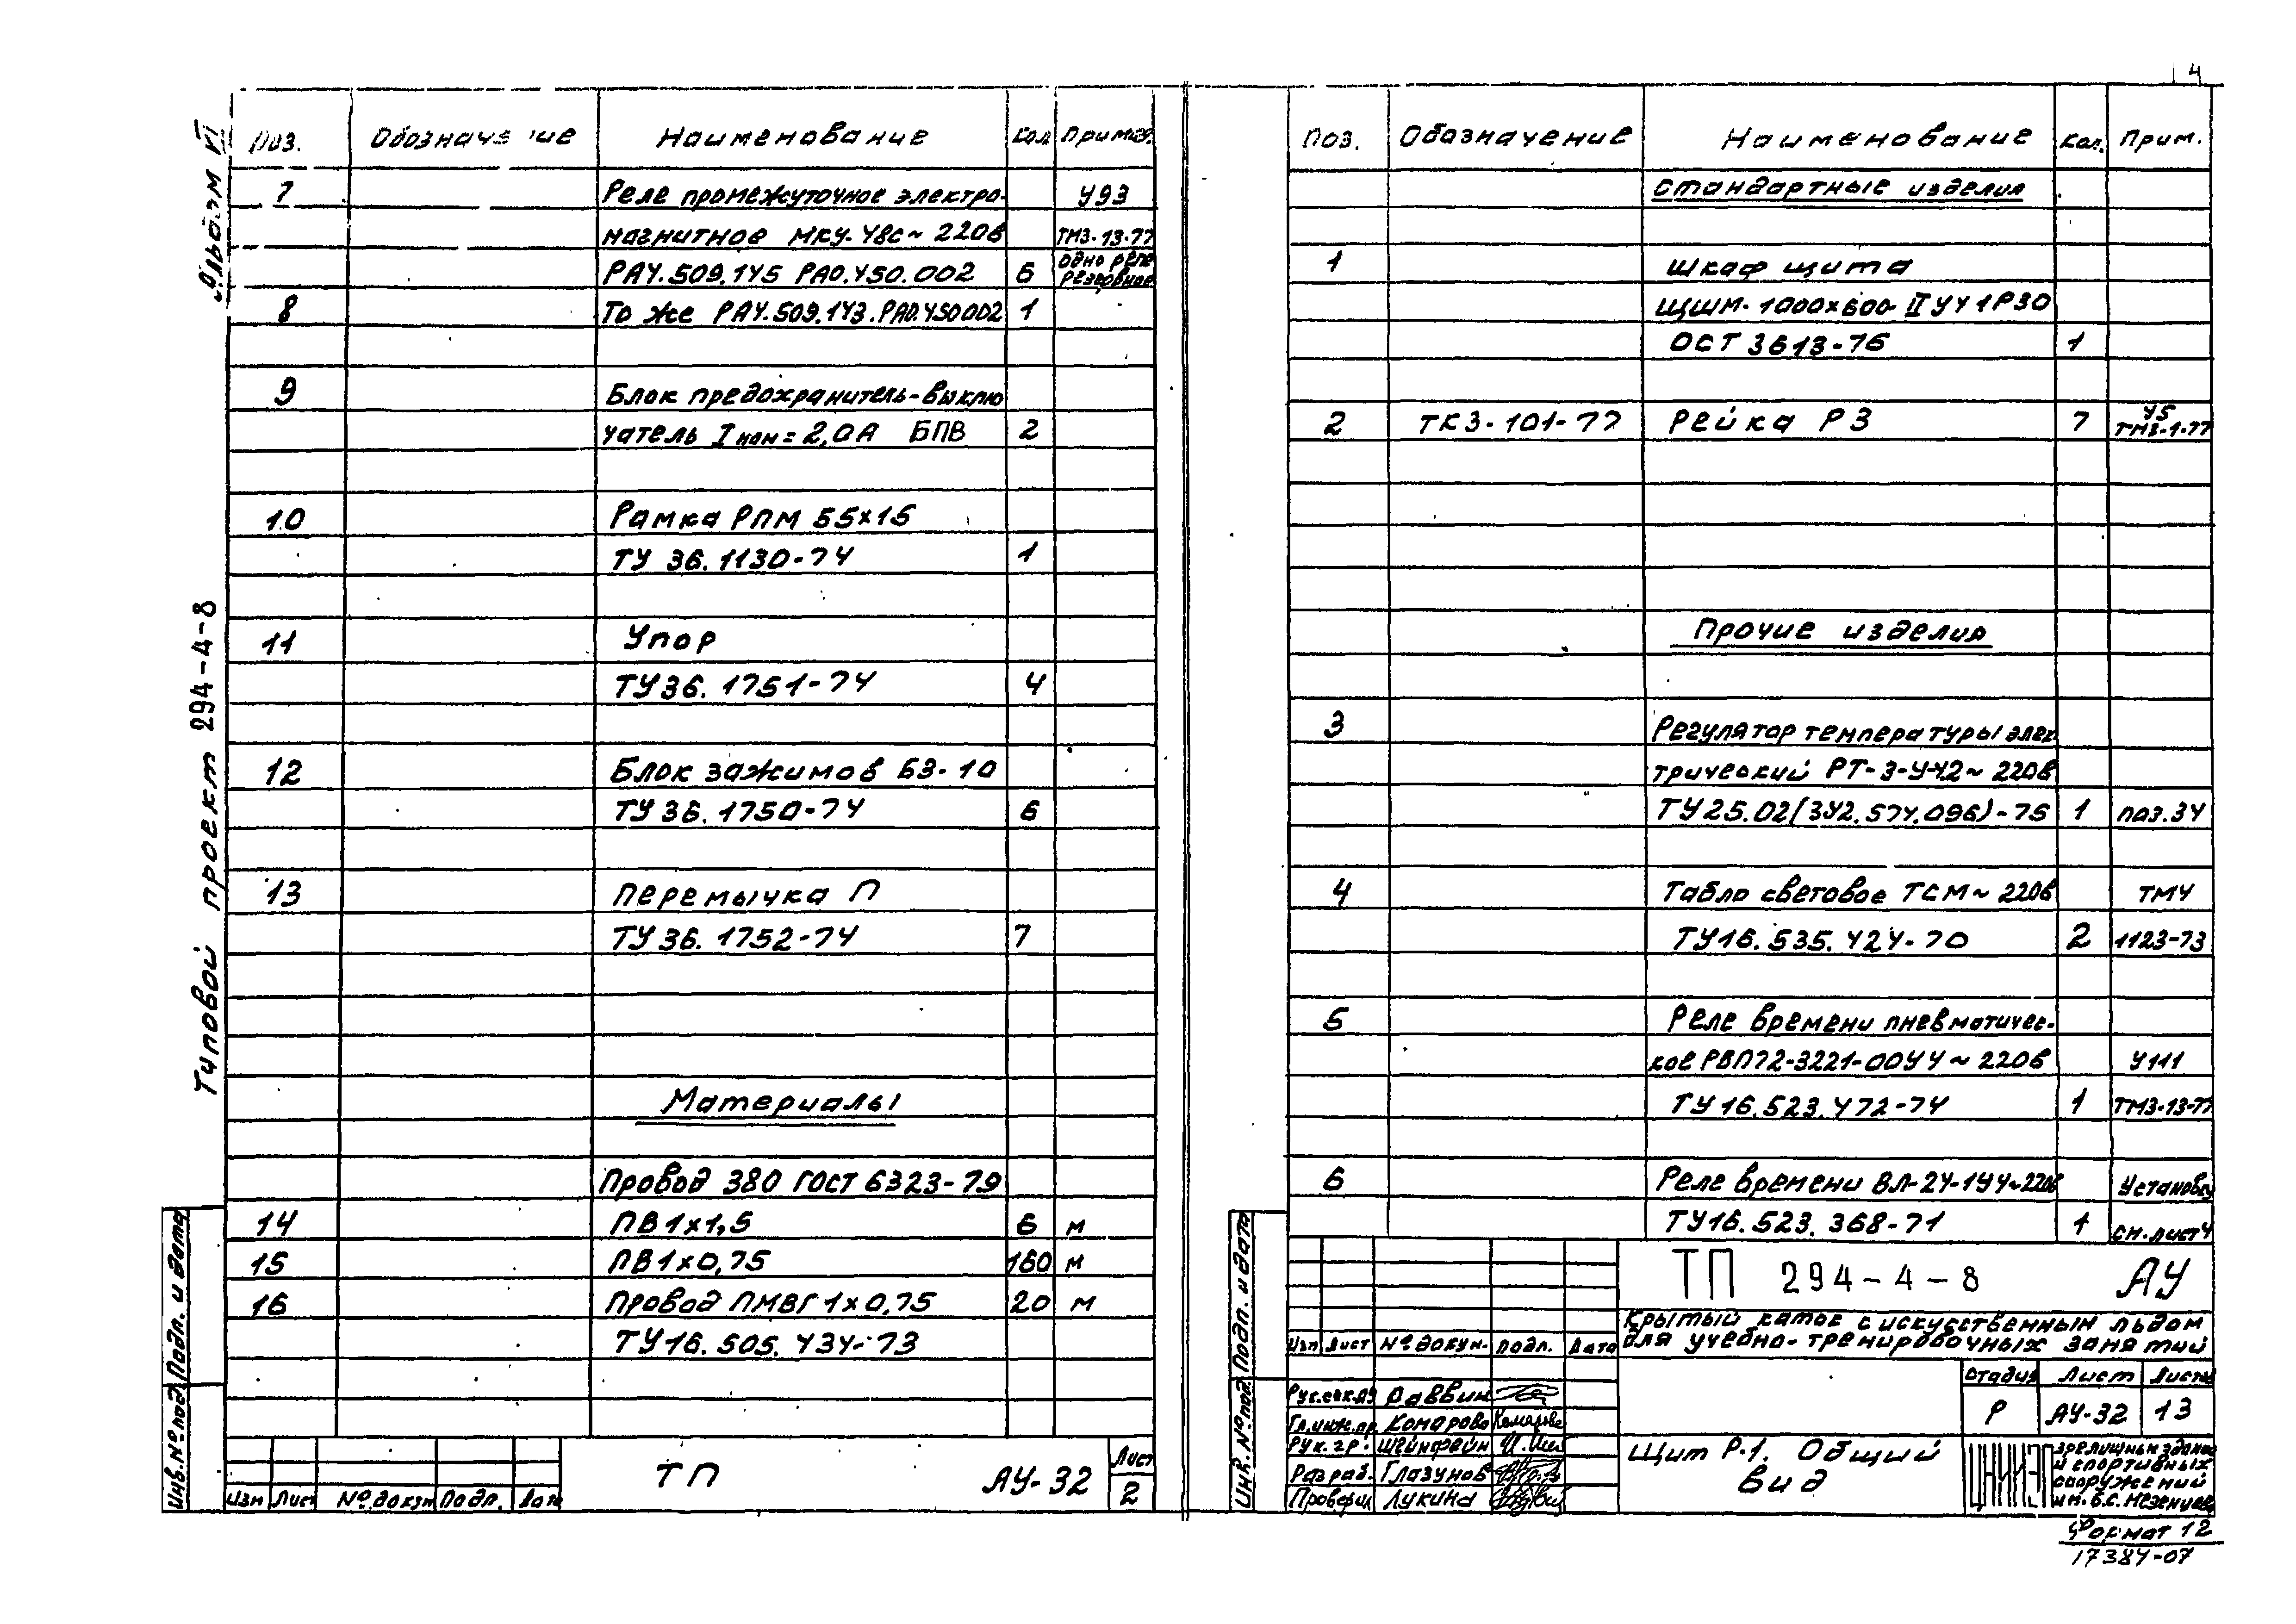 4
Альбом VI
Типовой проект 294-4-8
Поз. Обозначение Наименование Кол Примеч.
7 Реле промежуточное электро- У93
магнитное МКУ-48С ~ 220В ТМ3-13-77
РА4.509.145 РАО.450.002 6 одно реле резервное
8 То же РА4.509.143.РАО.450002 1
9 Блок предохранитель-выклю
чатель I ном = 2,0А БПВ 2
10 Рамка РПМ 55х15
ТУ 36.1130-74 1
11 Упор
ТУ36.1751-74 4
12 Блок зажимов БЗ-10
ТУ 36.1750-74 6
13 Перемычка П
ТУ36.1752-74 7
Материалы
Провод 380 ГОСТ 6323-79
14 ПВ 1х1,5 6 м
15 ПВ 1х0,75 160 м
16 Провод ПМВГ 1х0,75 20 м
ТУ16.505.434-73
Инв.№ подл. Подп. и дата
Изм Лист № докум Подп. Дата
ТП АУ-32 Лист 2
Поз. Обозначение Наименование Кол. Прим.
Стандартные изделия
1 Шкаф щита
ЩШМ-1000х600-II УЧ 1Р30
ОСТ 3613-76 1
2 ТК3-101-77 Рейка Р3 7 У5 ТМ3-1-77
Прочие изделия
3 Регулятор температуры элек
трический РТ-3-У42 ~ 220В
ТУ25.02(3У2.574.096)-75 1 поз.34
4 Табло световое ТСМ ~ 220В ТМ4
ТУ16.535.424-70 2 1123-73
5 Реле времени пневматичес-
кое РВП72-3221-00У4 ~ 220В У111
ТУ16.523.472-74 1 ТМ3-13-77
6 Реле времени ВЛ-24-1У4~220В Установку
ТУ16.523.368-71 1 см.лист4
Инв.№ подл. Подп. и дата
ТП 294-4-8 АУ
Крытый каток с искусственным льдом
для учебно-тренировочных занятий
Изм Лист № докум. Подп. Дата
Стадия Лист Листов
Р АУ-32 13
Рук.сек.АУ Раввин
Гл.инж.пр. Комарова
Рук.гр. Шейнфейн
Разраб. Глазунов
Проверил Лукина
Щит Р-1. Общий
вид
зрелищных зданий
и спортивных
сооружений
им. Б.С. Мезенцева
Формат 12
17384-07